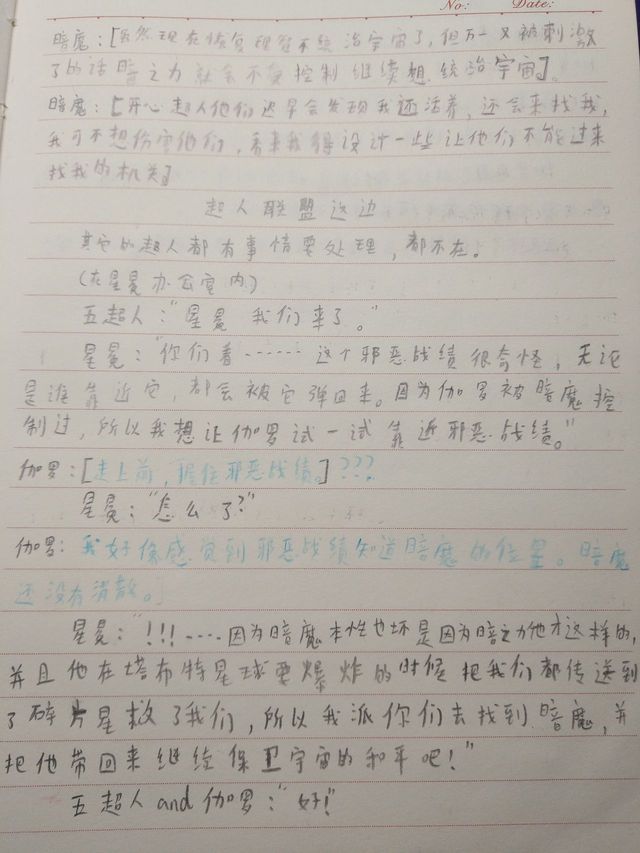 No: Date:
暗魔:[虽然现在恢复理智不统治宇宙了,但万一又被刺激
了的话暗之力就会不受控制继续想统治宇宙]。
暗魔:[开心超人他们迟早会发现我还活着,还会来找我,
我可不想伤害他们,看来我得设计一些让他们不能过来
找我的机关]
超人联盟这边
其它的超人都有事情要处理,都不在。
(在星星办公室内)
五超人:"星星 我们来了。"
星星:"你们看······这个邪恶战绩很奇怪,无论
是谁靠近它,都会被它弹回来。因为伽罗被暗魔控
制过,所以我想让伽罗试一试靠近邪恶战绩。"
伽罗:[走上前,握住邪恶战绩。]???
星星:"怎么了?"
伽罗:我好像感觉到邪恶战绩知道暗魔的位置。暗魔
还没有消散。]
星星:"!!!····因为暗魔本性也坏是因为暗之力他才这样的,
并且他在塔布特星球要爆炸的时候把我们都传送到
了碎片星救了我们,所以我派你们去找到暗魔,并
把他带回来继续保卫宇宙的和平吧!"
五超人and伽罗:"好!"